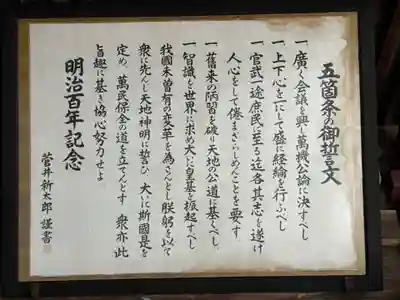 五箇条の御誓文
一 廣く会議を興し萬機公論に決すべし
一 上下心を一にして盛に経綸を行ふべし
一 官武一途庶民に至る迄各其志を遂げ
人心をして倦まざらしめんことを要す
一 舊来の陋習を破り天地の公道に基くべし
一 智識を世界に求め大いに皇基を振起すべし
我國未曽有の変革を為さんとし朕躬を以て
衆に先んじ天地神明に誓ひ 大いに斯國是を
定め 萬民保全の道を立てんとす 衆亦此
旨趣に基き協心努力せよ
明治百年記念
菅井新太郎 謹書